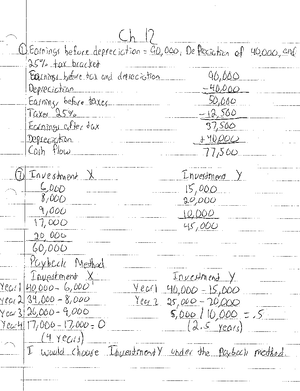 Ch 12
① Earnings before depreciation = 90,000, Depreciation of 40,000, and
25% tax bracket
Earnings before tax and depreciation 90,000
Depreciation -40,000
Earnings before taxes 50,000
Taxes 25% -12,500
Earnings after tax 37,500
Depreciation +40,000
Cash flow 77,500
② Investment X Investment Y
6,000 15,000
8,000 20,000
9,000 10,000
17,000 45,000
20,000
60,000
Payback Method
Investment X Investment Y
Year 1 40,000 - 6,000 Year 1 40,000 - 15,000
Year 2 34,000 - 8,000 Year 2 25,000 - 20,000
Year 3 26,000 - 9,000 5,000 / 10,000 = .5
Year 4 17,000 - 17,000 = 0 (2.5 years)
(4 years)
I would choose Investment Y under the Payback method.